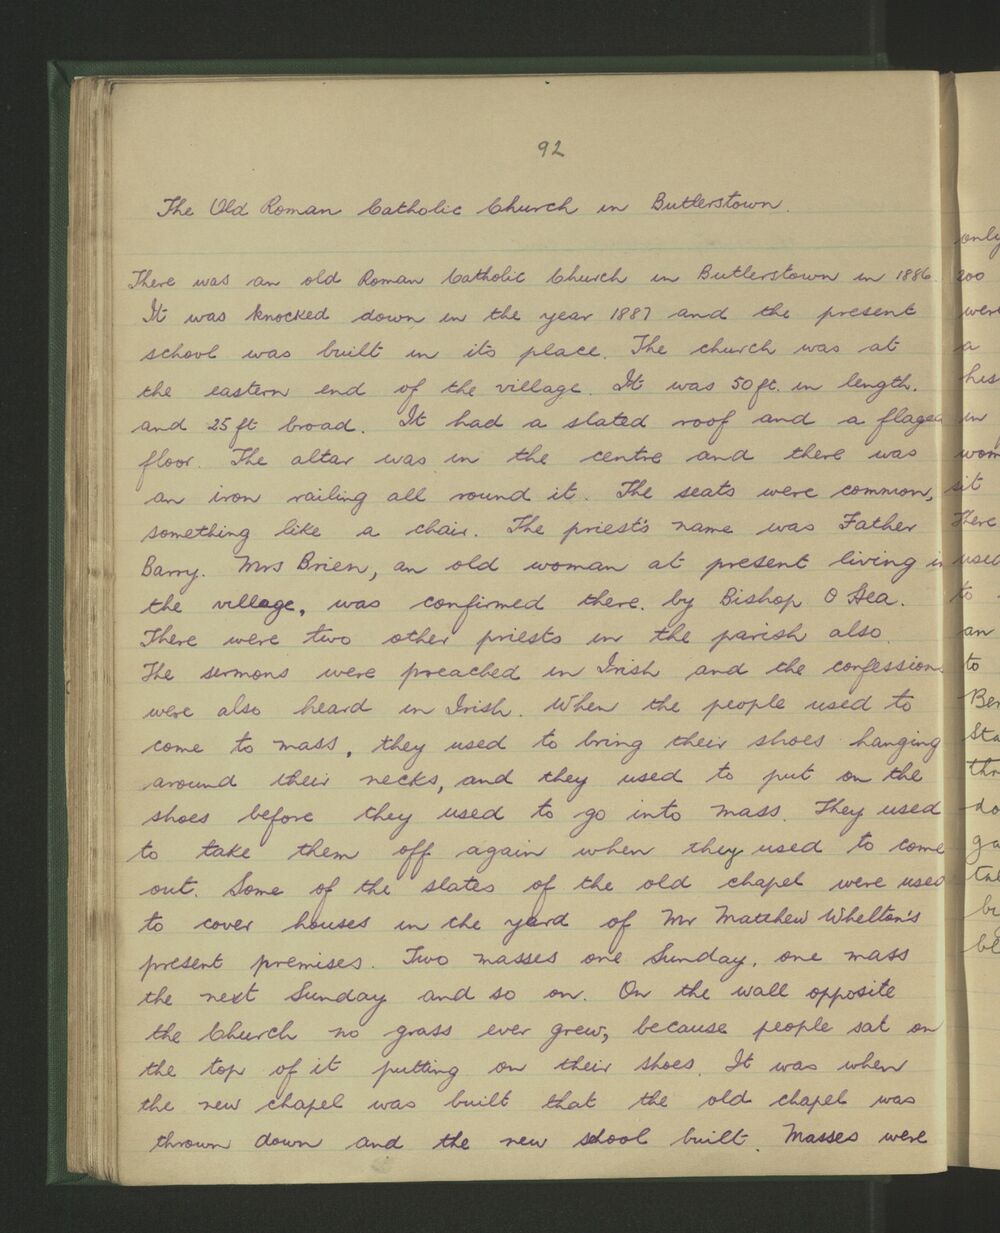 92
The Old Roman Catholic Church in Butlerstown.
There was an old Roman Catholic Church in Butlerstown in 1886.
It was knocked down in the year 1887 and the present
school was built in its place. The church was at
the eastern end of the village. It was 50 ft. in length.
and 25 ft broad. It had a slated roof and a flaged
floor. The altar was in the centre and there was
an iron railing all round it. The seats were common,
something like a chair. The priest's name was Father
Barry. Mrs Brien, an old woman at present living in
the village, was confirmed there. by Bishop O Hea.
There were two other priests in the parish also.
The sermons were preached in Irish and the confessions
were also heard in Irish. When the people used to
come to mass, they used to bring their shoes hanging
around their necks, and they used to put on the
shoes before they used to go into mass. They used
to take them off again when they used to come
out. Some of the slates of the old chapel were used
to cover houses in the yard of Mr Matthew Whelton's
present premises. Two masses one Sunday, one mass
the next Sunday and so on. On the wall opposite
the Church no grass ever grew, because people sat on
the top of it putting on their shoes. It was when
the new chapel was built that the old chapel was
thrown down and the new school built. Masses were
only
200
were
a
his
in
wom
sit
There
used
to
an
to
Ber
Sta
thr
do
ga
the
bu
be